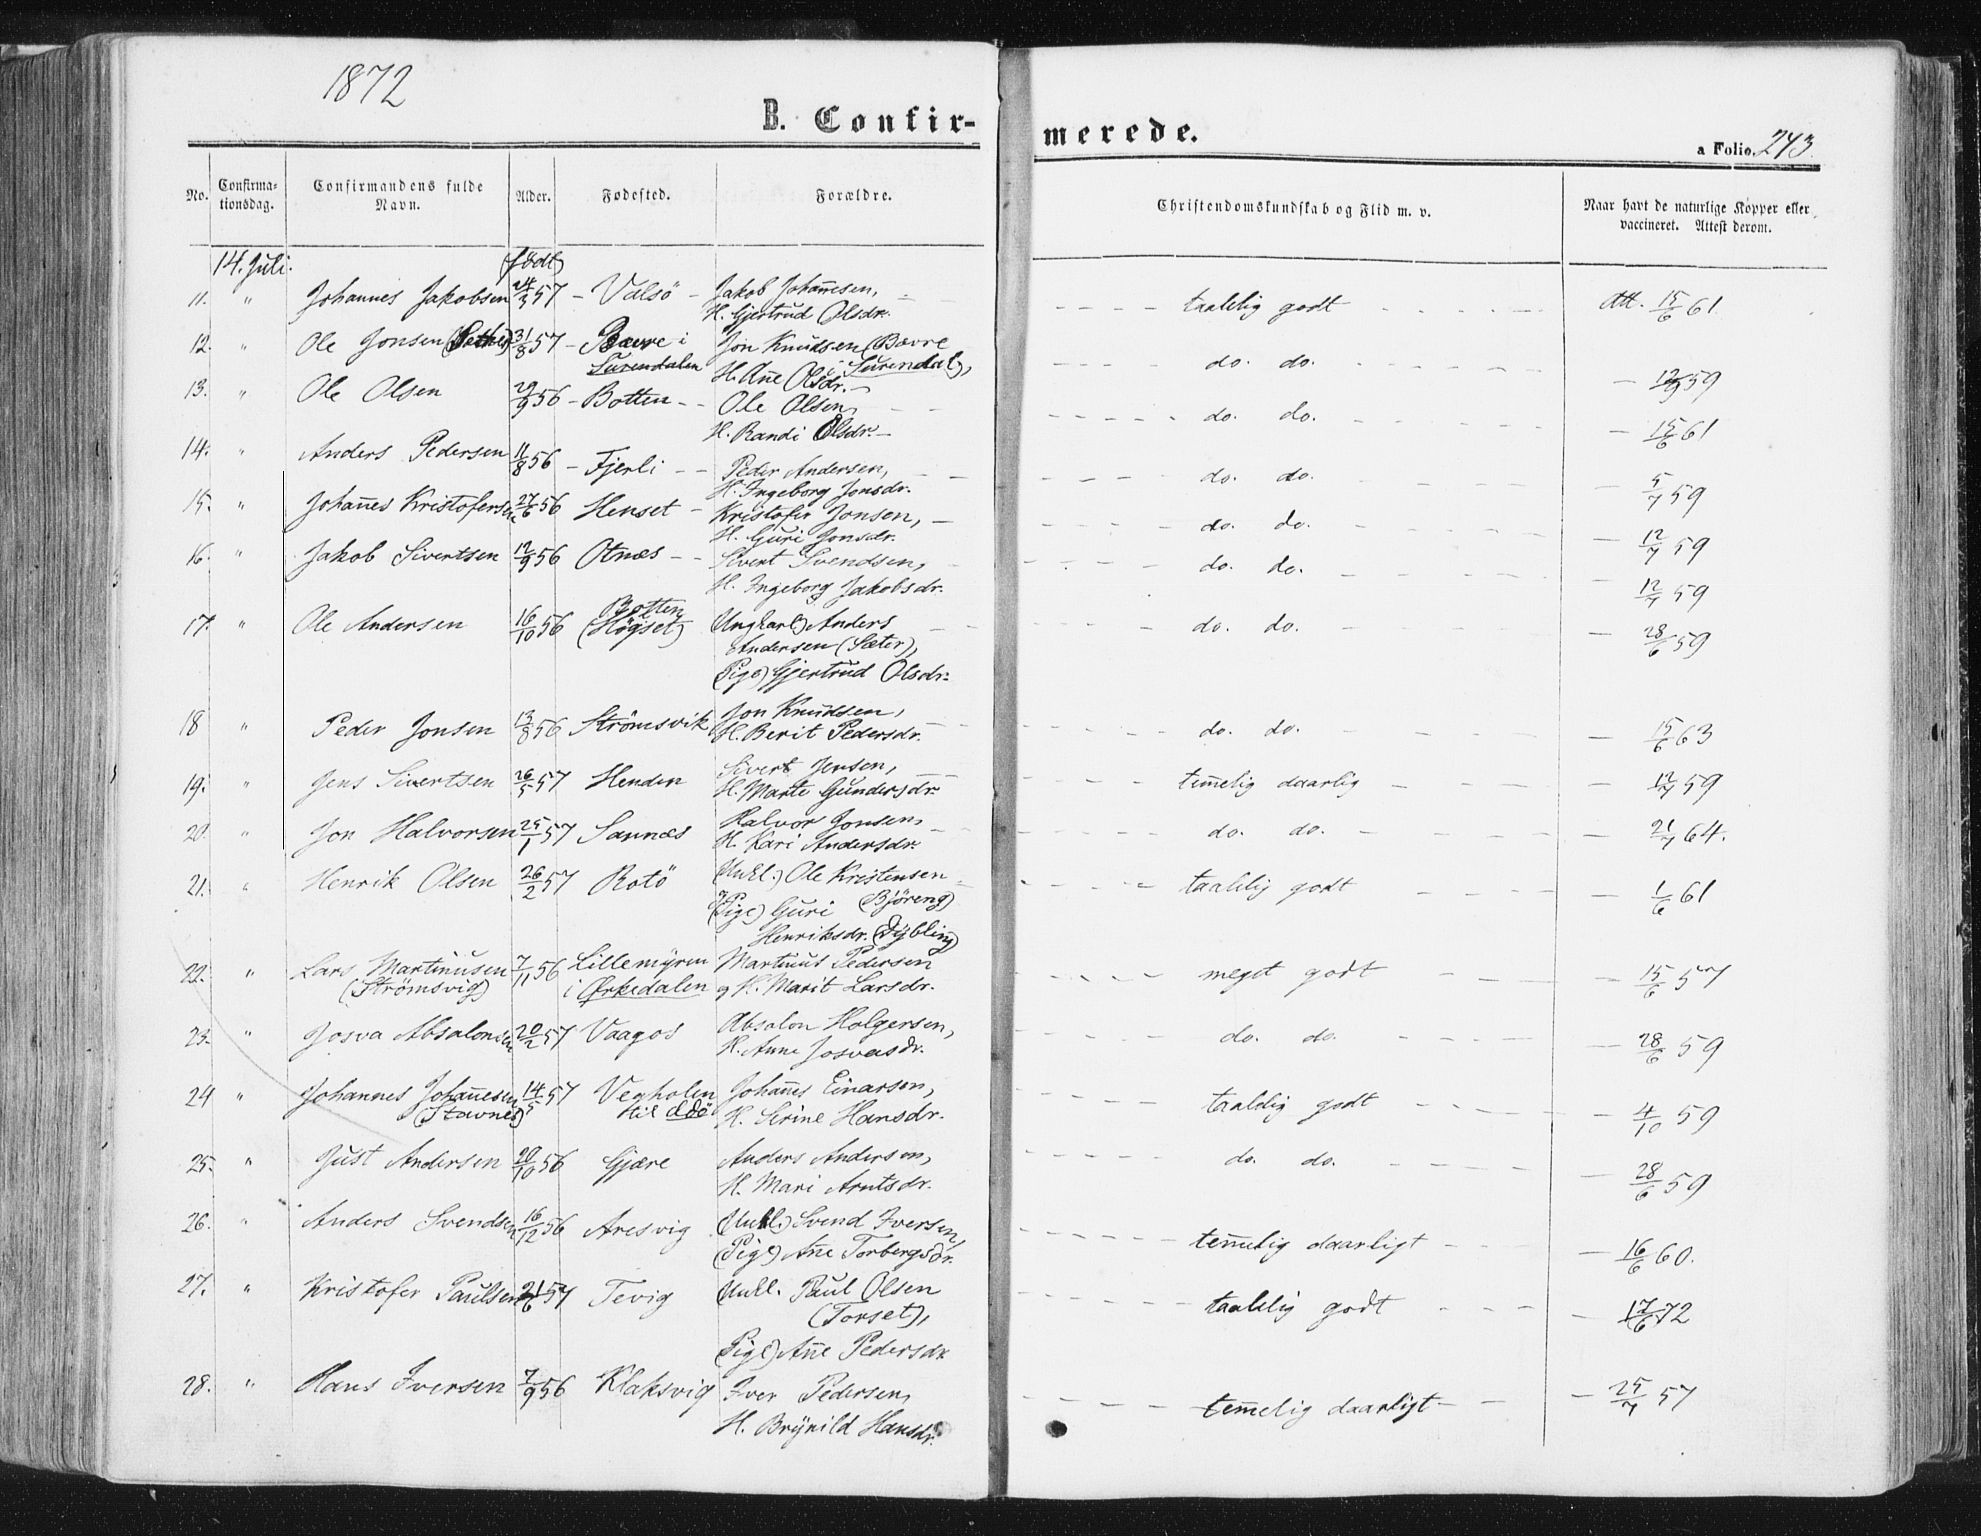 1872
B. Confir-
merede.
a Folio. 243.
No.
Confirma-
tionsdag.
Confirmandens fulde
Navn.
Alder.
Fødested.
Forældre.
Christendomskundskab og Flid m. v.
Naar havt de naturlige Kopper eller
vaccineret. Attest derom.
14. Juli. (født)
11. " Johannes Jakobsen 24/3 57 - Valsö - Jakob Johannesen, - - - - taalelig godt - - - - Att. 15/6 61.
H. Gjertrud Olsdr.
12. " Ole Jonsen 31/8 57 - Bævre i Jon Knudsen (Bævre - - - - do. do. - - - - - 12/9 59
Surendalen i Surendal),
H. Ane Olsdr. -
13. " Ole Olsen 29/9 56 - Botten - - Ole Olsen, - - - - - - do. do. - - - - 15/6 61
H. Randi Olsdr. -
14. " Anders Pedersen 11/8 56 - Fjerli - - Peder Andersen, - - - - do. do. - - - 5/7 59
H. Ingeborg Jonsdr.
15. " Johanes Kristofersen 27/6 56 Henset - Kristofer Jonsen, - - - - do. do. - - - 12/7 59
H. Guri Jonsdr.
16. " Jakob Sivertsen 12/9 56 Otnæs - - Sivert Svendsen, - - - - do. do. - - - 12/7 59
H. Ingeborg Jakobsdr.
17. " Ole Andersen 16/10 56 Botten (Ungkarl) Anders - - - do. do. - - - 28/6 59
(Högset) Andersen (Sæter),
(Pige) Gjertrud Olsdr.
18 " Peder Jonsen 13/8 56 Strömsvik Jon Knudsen, - - - - do. do. - - - 15/6 63
H. Berit Pedersdr. -
19. " Jens Sivertsen 26/5 57 Henden Sivert Jensen, - - - - temelig daarlig - - - 12/7 59
H. Marte Gundersdr.
20. " Jon Halvorsen 25/1 57 Sannæs Halvor Jonsen, - - - - do. do. - - - 21/7 64.
H. Kari Andersdr.
21. " Henrik Olsen 26/2 57 Rotö (Unkl.) Ole Kristensen - - - - taalelig godt - - - 1/6 61
(Björeng)
(Pige) Guri
Henriksdr. (Dybling)
22. " Lars Martinusen 7/11 56 Lillemyren Martinus Pedersen - - - meget godt - - - 15/6 57
(Strömsvig) i Ørkedalen og H. Marit Larsdr.
23. " Josva Absalonsen 20/2 57 Vaagos Absalon Holgersen, - - - do. do. - - - 28/6 59
H. Anne Josvasdr.
24 " Johannes Johanesen 14/5 57 Vegholen Johanes Einarsen, - - - - taalelig godt - - - 4/10 59
(Stavnes) til H. Serine Hansdr.
25. " Just Andersen 20/10 56 Gjære Anders Andersen, - - - - do. do. - - - 28/6 59
H. Mari Arntsdr.
26. " Anders Svendsen 16/12 56 Aresvig (Unkl.) Svend Iversen, - - - - temelig daarligt - - - 16/6 60.
(Pige) Ane Torbergsdr.
27. " Kristofer Paulsen 21/6 57 Tevig Unkl. Paul Olsen - - - - taalelig godt - - - 17/6 72
(Torset),
(Pige) Ane Pedersdr.
28. " Hans Iversen 7/9 56 Klaksvig Iver Pedersen, - - - - temelig daarligt - - - 25/7 57
H. Brynild Hansdr.